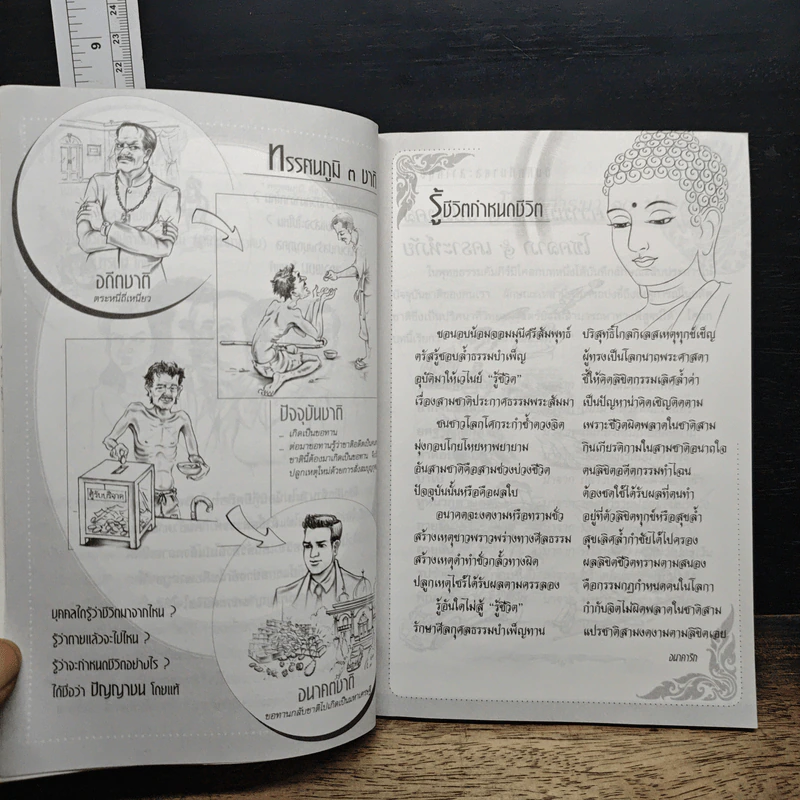 24
23
22
9
ทรรศนภูมิ ๓ ชาติ
อดีตชาติ
ตระหนี่ถี่เหนียว
ปัจจุบันชาติ
- เกิดเป็นขอทาน
- ต่อมาขอทานรู้ว่าชาติอดีตเป็นคน
ชาตินี้ต้องมาเกิดเป็นขอทาน
ปลูกเหตุใหม่ด้วยการสั่งสมบุญ
ตู้รับบริจาค
อนาคตชาติ
ขอทานกลับชาติไปเกิดเป็นมหาเศรษฐี
บุคคลใดรู้ว่าชีวิตมาจากไหน ?
รู้ว่าตายแล้วจะไปไหน ?
รู้ว่าจะกำหนดชีวิตอย่างไร ?
ได้ชื่อว่า ปัญญาชน โดยแท้
รู้ชีวิตกำหนดชีวิต
ขอนอบน้อมจอมมุนีศรีสัมพุทธ์ บริสุทธิ์ไกลกิเลสเหตุทุกข์เข็ญ
ตรัสรู้ชอบล้ำธรรมบำเพ็ญ ผู้ทรงเป็นโลกนาถพระศาสดา
อุบัติมาให้เวไนย์ "รู้ชีวิต" ชี้ให้คิดลิขิตกรรมเลิศล้ำค่า
เรื่องสามชาติประกาศธรรมพระสัมมา เป็นปัญหาน่าคิดเชิญติดตาม
ชนชาวโลกโศกระกำช้ำดวงจิต เพราะชีวิตผิดพลาดในชาติสาม
มุ่งกอบโกยโหยหาพยายาม กินเกียรติกามในสามชาติอนาถใจ
อันสามชาติคือสามช่วงบ่วงชีวิต ตนลิขิตอดีตกรรมทำไฉน
ปัจจุบันนั้นหรือคือผลใบ ต้องชดใช้ได้รับผลที่ตนทำ
อนาคตจะงดงามหรือทรามชั่ว อยู่ที่ตัวลิขิตทุกข์หรือสุขล้ำ
สร้างเหตุขาวพราวพร่างทางศีลธรรม สุขเลิศล้ำกำชัยได้ไปครอง
สร้างเหตุดำทำชั่วกลั้วทางผิด ผลลิขิตชีวิตทรามตามสนอง
ปลูกเหตุไซร้ได้รับผลตามครรลอง คือกรรมกฎกำหนดคนในโลกา
รู้อันใดไม่สู้ "รู้ชีวิต" กำกับจิตไม่ผิดพลาดในชาติสาม
รักษาศีลกุศลธรรมบำเพ็ญทาน แปรชาติสามงดงามตามลิขิตเอย
อนาคาริก